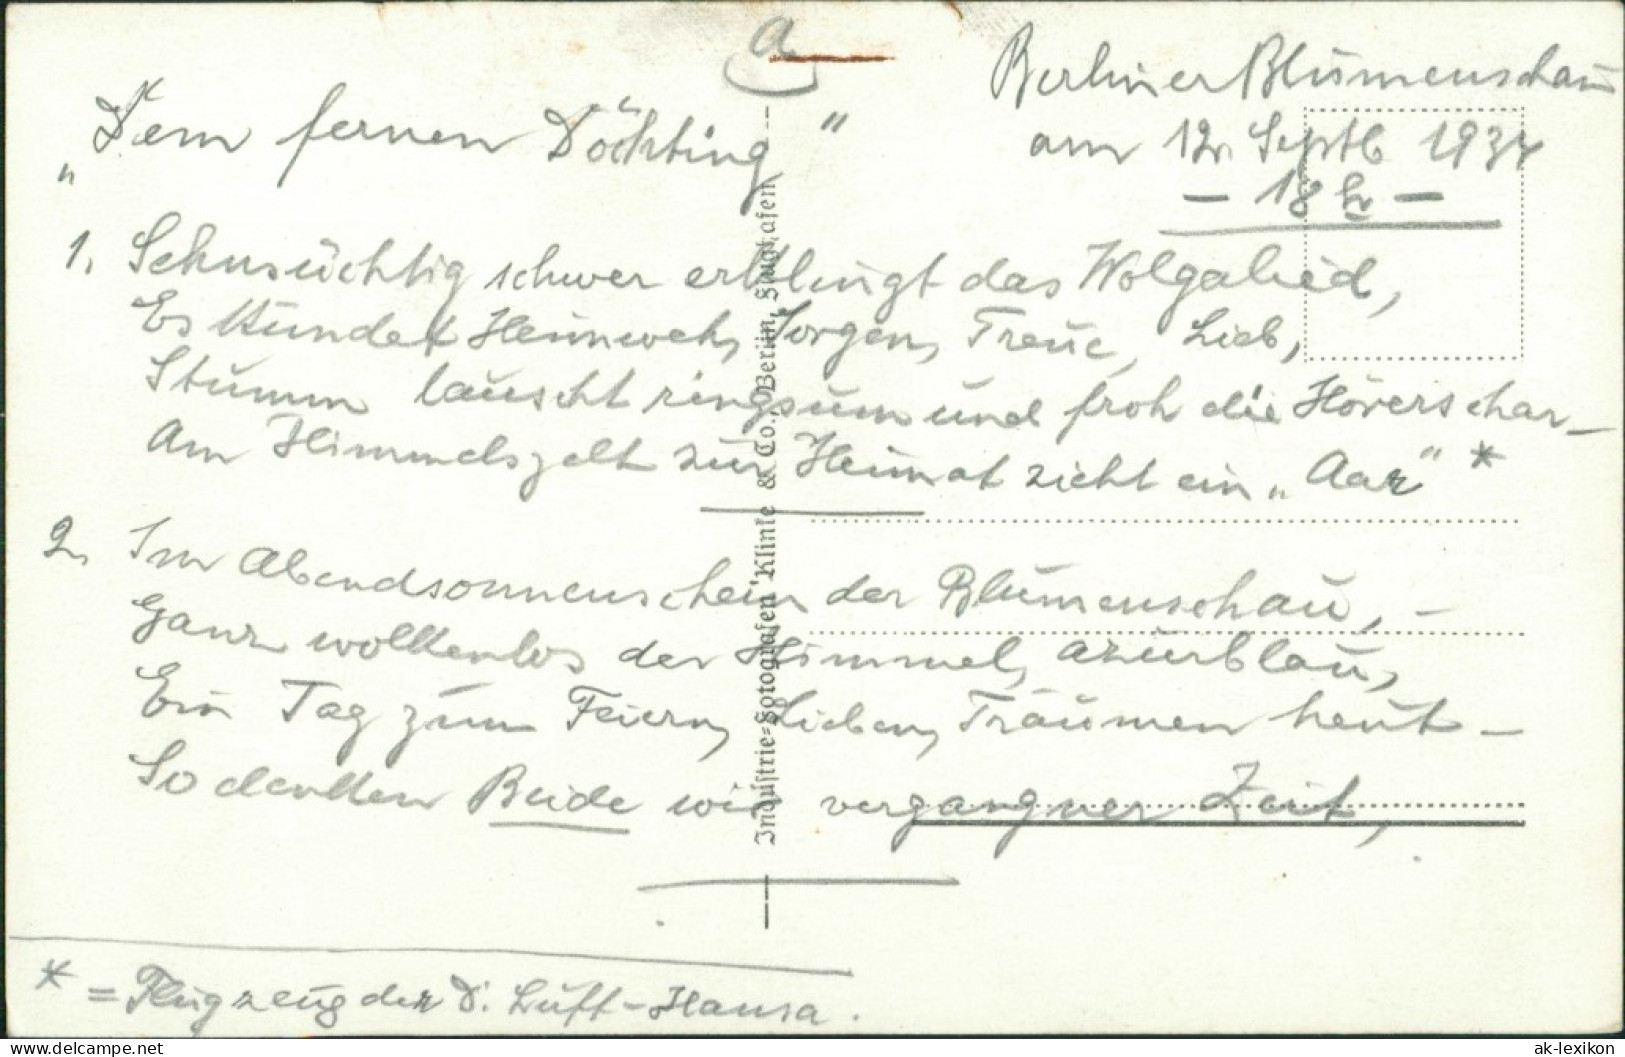 a
Berliner Blumenschau
am 12. Septb 1937
- 18 h -
„Dem fernen Döchting"
1. Sehnsüchtig schwer erklingt das Wolgalied,
Es kündet Heimweh, Sorgen, Treue, Lieb,
Stumm lauscht ringsum und froh die Hörerschar –
Am Himmelszelt zur Heimat zieht ein „Aar" *
2. Im Abendsonnenschein der Blumenschau, –
Ganz wolkenlos der Himmel, azurblau,
Ein Tag zum Feiern, Lieben, Träumen heut –
So denken Beide wie vergangner Zeit,
* = Flugzeug der D. Luft-Hansa.
Industrie-Fotografen Klinke & Co., Berlin, Flughafen
www.ansichtskarten-lexikon.de
ak-lexikon